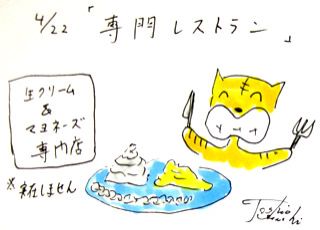 4/22 「専門レストラン」
生クリーム
&
マヨネーズ
専門店
※実在しません